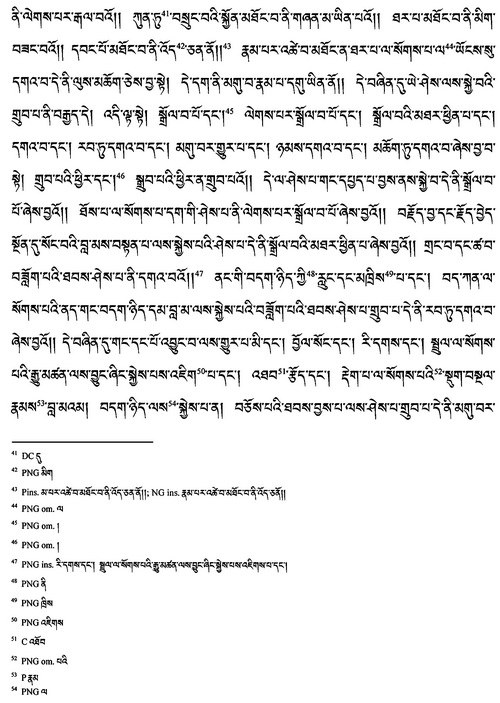 ནི་ལེགས་པར་རྒལ་བའོ།། ཀུན་ཏུ་41་བསྲུང་བའི་སྐྱོན་མཐོང་བ་ནི་གཞན་མ་ཡིན་པའོ།། ཐར་པ་མཐོང་བ་ནི་མིག་
བཟང་བའོ།། དབང་པོ་མཐོང་བ་ནི་འོད་42་ཅན་ནོ།།43 རྣམ་པར་འཚེ་བ་མཐོང་ན་ཐར་པ་ལ་སོགས་པ་ལ་44་ཡོངས་སུ་
དགའ་བ་དེ་ནི་ལུས་མཆོག་ཅེས་བྱ་སྟེ། དེ་དག་ནི་མགུ་བ་རྣམ་པ་དགུ་ཡིན་ནོ།། དེ་བཞིན་དུ་ཡེ་ཤེས་ལས་སྐྱེ་བའི་
གྲུབ་པ་ནི་བརྒྱད་དེ། འདི་ལྟ་སྟེ། སྒྲོལ་བ་པོ་དང་།45 ལེགས་པར་སྒྲོལ་བ་པོ་དང་། སྒྲོལ་བའི་མཐར་ཕྱིན་པ་དང་།
དགའ་བ་དང་། རབ་ཏུ་དགའ་བ་དང་། མགུ་བར་གྱུར་པ་དང་། ཉམས་དགའ་བ་དང་། མཆོག་ཏུ་དགའ་བ་ཞེས་བྱ་བ་
སྟེ། གྲུབ་པའི་ཕྱིར་དང་།46 སྒྲུབ་པའི་ཕྱིར་ན་གྲུབ་པའོ།། དེ་ལ་ཤེས་པ་གང་དཔྱད་པ་བྱས་ནས་སྐྱེ་བ་དེ་ནི་སྒྲོལ་བ་
པོ་ཞེས་བྱའོ།། ཐོས་པ་ལ་སོགས་པ་དག་གི་ཤེས་པ་ནི་ལེགས་པར་སྒྲོལ་བ་པོ་ཞེས་བྱའོ།། བརྗོད་བྱ་དང་རྗོད་བྱེད་
སྔོན་དུ་སོང་བའི་བླ་མས་བསྟན་པ་ལས་སྐྱེས་པའི་ཤེས་པ་དེ་ནི་སྒྲོལ་བའི་མཐར་ཕྱིན་པ་ཞེས་བྱའོ།། གྲང་བ་དང་ཚ་བ་
བཟློག་པའི་ཐབས་ཤེས་པ་ནི་དགའ་བའོ།།47 ནང་གི་བདག་ཉིད་ཀྱི་48་རླུང་དང་མཁྲིས་49་པ་དང་། བད་ཀན་ལ་
སོགས་པའི་ནད་གང་བདག་ཉིད་དམ་བླ་མ་ལས་སྐྱེས་པའི་བཟློག་པའི་ཐབས་ཤེས་པ་གྲུབ་པ་དེ་ནི་རབ་ཏུ་དགའ་བ་
ཞེས་བྱའོ།། དེ་བཞིན་དུ་གང་དང་པོ་འབྱུང་བ་ལས་གྱུར་པ་མི་དང་། བྱོལ་སོང་དང་། རི་དགས་དང་། སྦྲུལ་ལ་སོགས་
པའི་རྒྱུ་མཚན་ལས་བྱུང་ཞིང་སྐྱེས་པས་འཇིག་50་པ་དང་། འཐབ་51་རྩོད་དང་། རྡེག་པ་ལ་སོགས་པའི་52་སྡུག་བསྔལ་
རྣམས་53་བླ་མའམ། བདག་ཉིད་ལས་54་སྐྱེས་པ་ན། བཅོས་པའི་ཐབས་བྱས་པ་ལས་ཤེས་པ་གྲུབ་པ་དེ་ནི་མགུ་བར་
41 DC དུ
42 PNG མིག
43 Pins. མ་པར་འཚེ་བ་མཐོང་བ་ནི་འོད་ཅན་ནོ།།; NG ins. རྣམ་པར་འཚེ་བ་མཐོང་བ་ནི་འོད་ཅན་ནོ།།
44 PNG om. ལ
45 PNG om. །
46 PNG om. །
47 PNG ins. རི་དགས་དང་། སྦྲུལ་ལ་སོགས་པའི་རྒྱུ་མཚན་ལས་བྱུང་ཞིང་སྐྱེས་པས་འཇིགས་པ་དང་།
48 PNG ནི
49 PNG ཁྲིས
50 PNG འཇིགས
51 C འཐོབ
52 PNG om. པའི
53 P རྣམ
54 PNG ལ